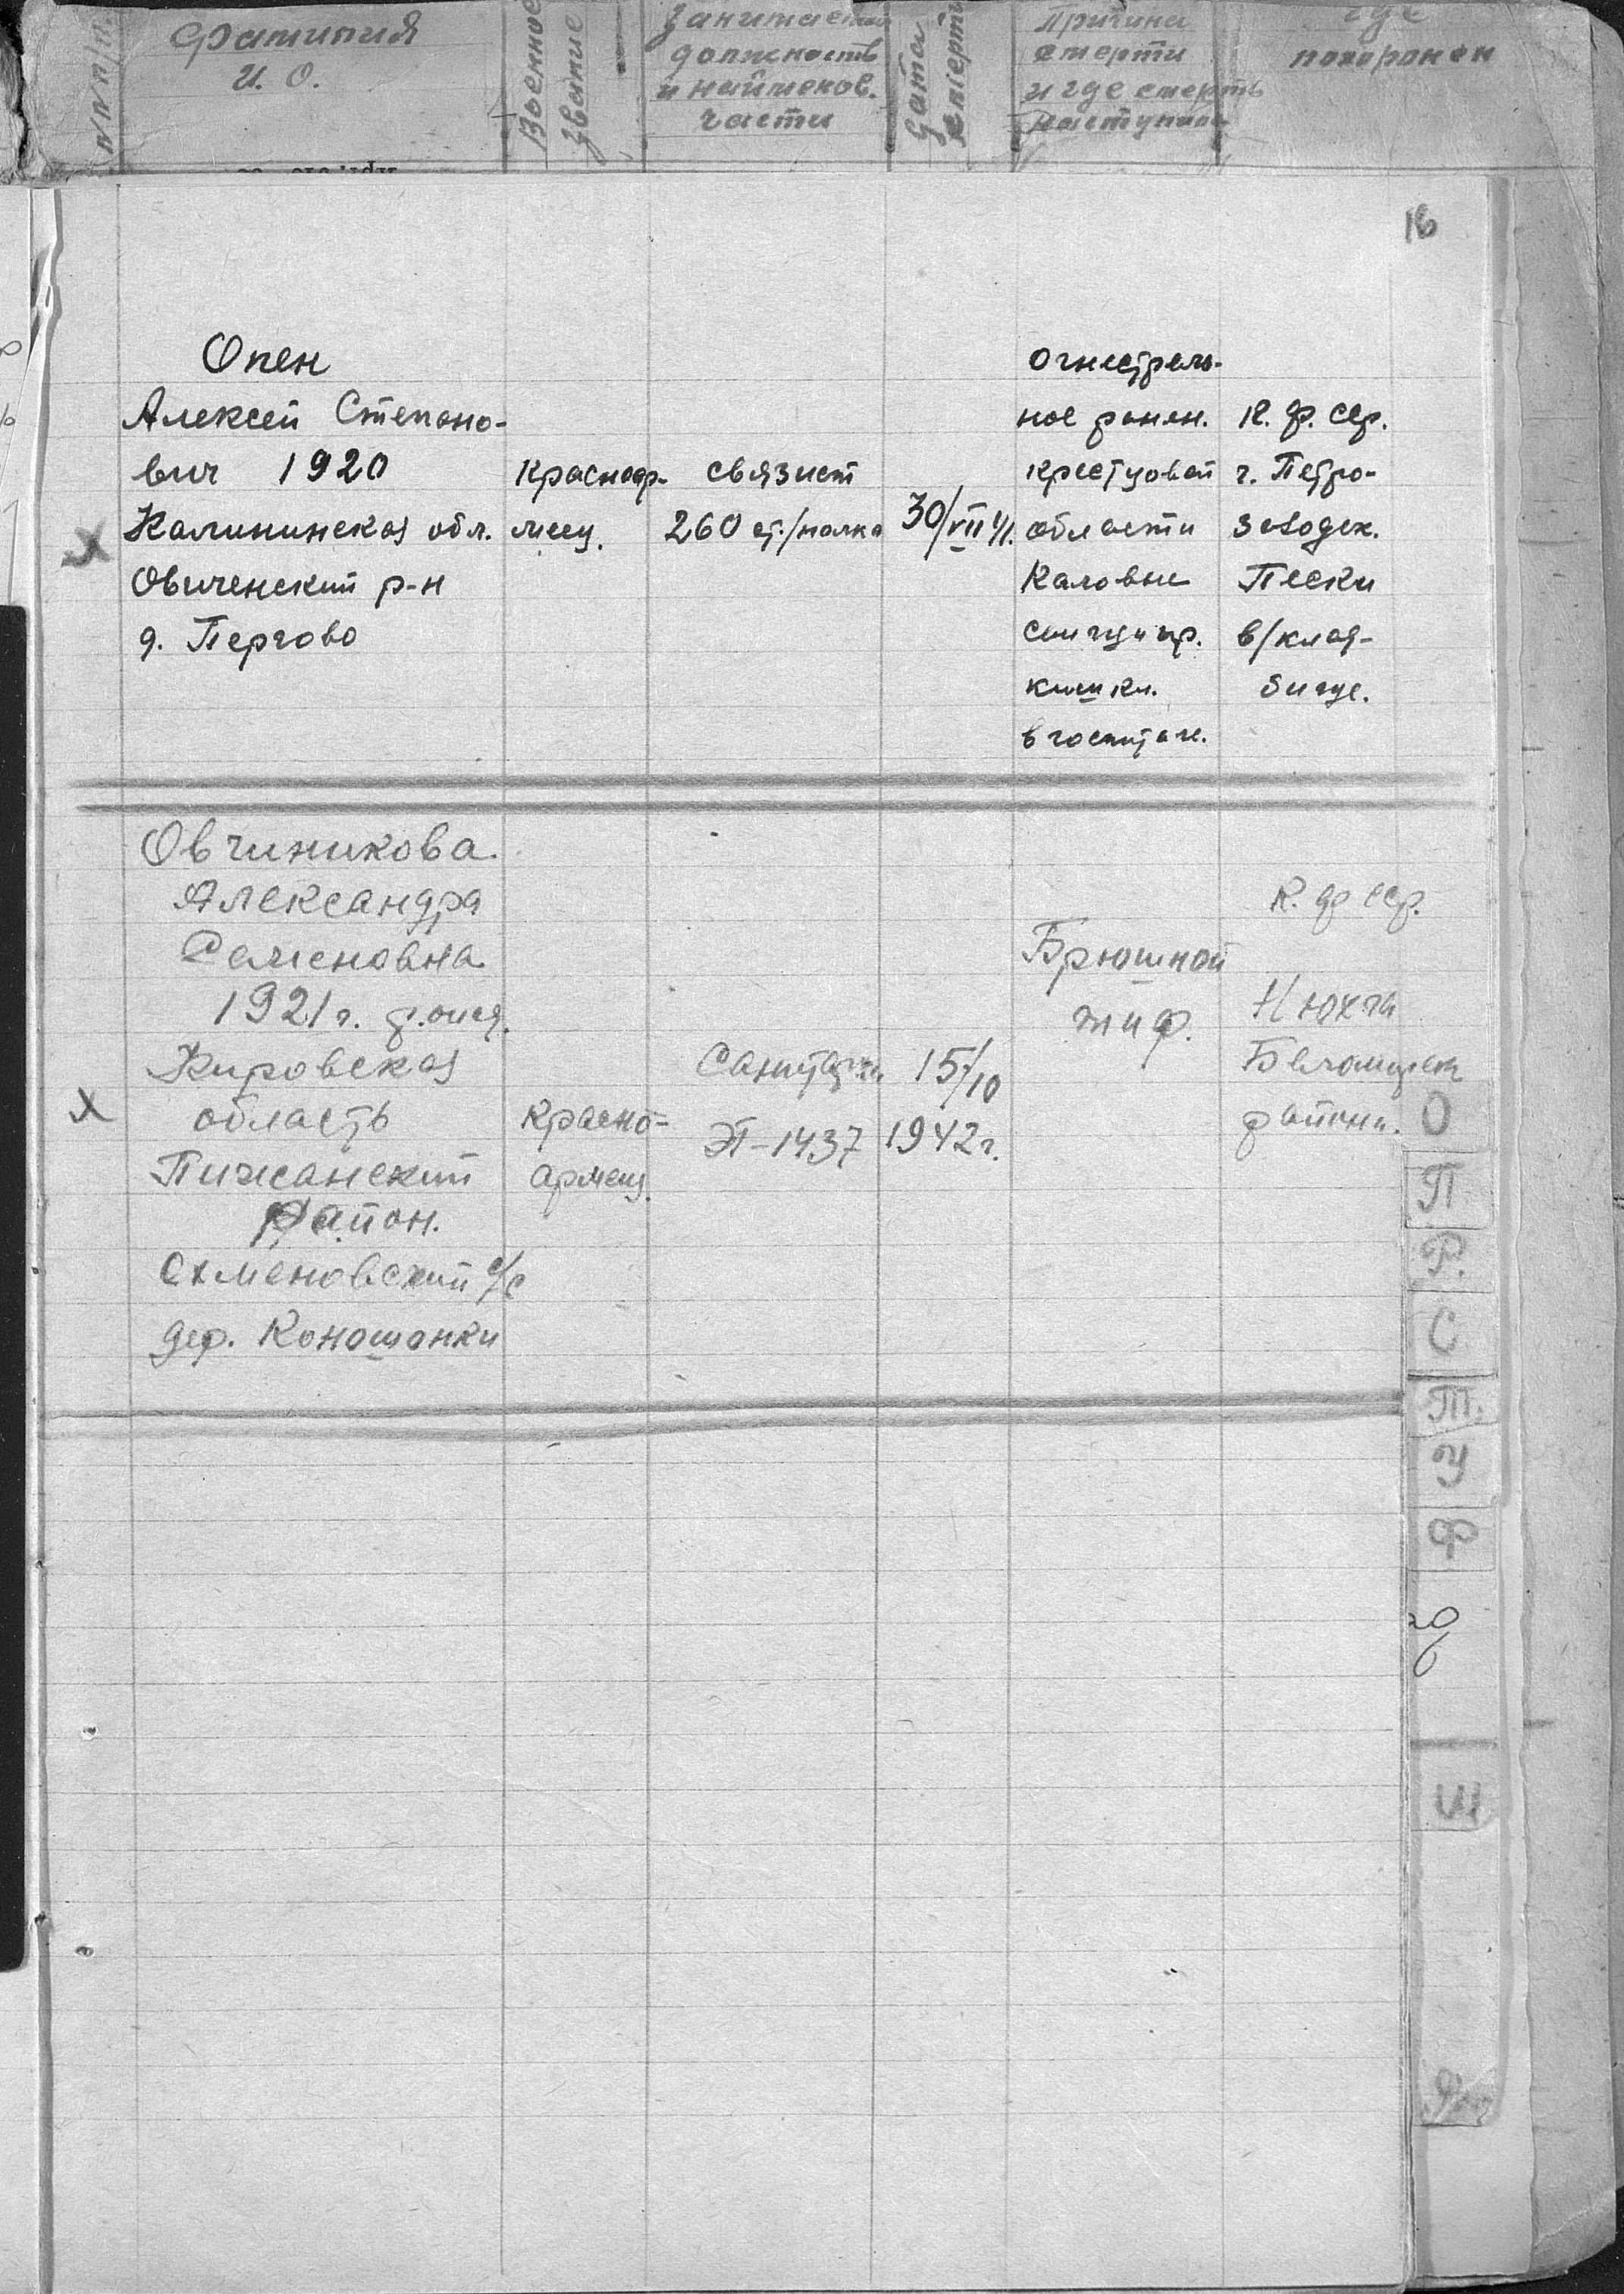 №№ п/п
Фамилия
И. О.
Военное
звание
Занимаемая
должность
и наименов.
части
Дата
смерти
Причина
смерти
и где смерть
наступила
где
похоронен
16
Опен
Алексей Степано-
вич 1920
Калининская обл.
Овиченский р-н
д. Пергово
Красноар-
меец.
связист
260 ст./полка
30/VII 41.
огнестрель-
ное ранен.
крестцовой
области
Каловые
кишки.
в госпитале.
К. ф. сср.
г. Петро-
заводск.
Пески
в/клад-
бище.
х
Овчиникова
Александра
Семеновна
1921 г. рожд.
Кировская
область
Пижанский
район.
Ахмановский с/с
дер. Коношонки
х
Красно-
армеец.
Санитарка
ЭГ-1437
15/10
1942 г.
Брюшной
тиф.
К. ф сср.
Нюхча
Беломорск
района.
О
П
Р.
С
Т.
У
Ф
Ш